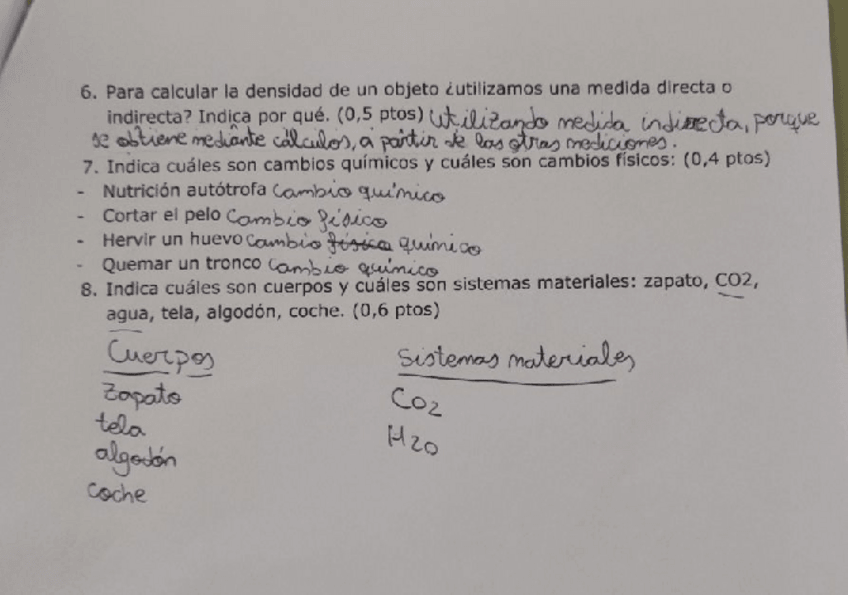 6. Para calcular la densidad de un objeto ¿utilizamos una medida directa o
indirecta? Indica por qué. (0,5 ptos) Utilizando medida indirecta, porque
se obtiene mediante cálculos, a partir de las otras mediciones.
7. Indica cuáles son cambios químicos y cuáles son cambios físicos: (0,4 ptos)
- Nutrición autótrofa Cambio químico
- Cortar el pelo Cambio físico
- Hervir un huevo Cambio físico químico
- Quemar un tronco Cambio químico
8. Indica cuáles son cuerpos y cuáles son sistemas materiales: zapato, CO2,
agua, tela, algodón, coche. (0,6 ptos)
Cuerpos Sistemas materiales
Zapato CO2
tela H2O
algodón
coche